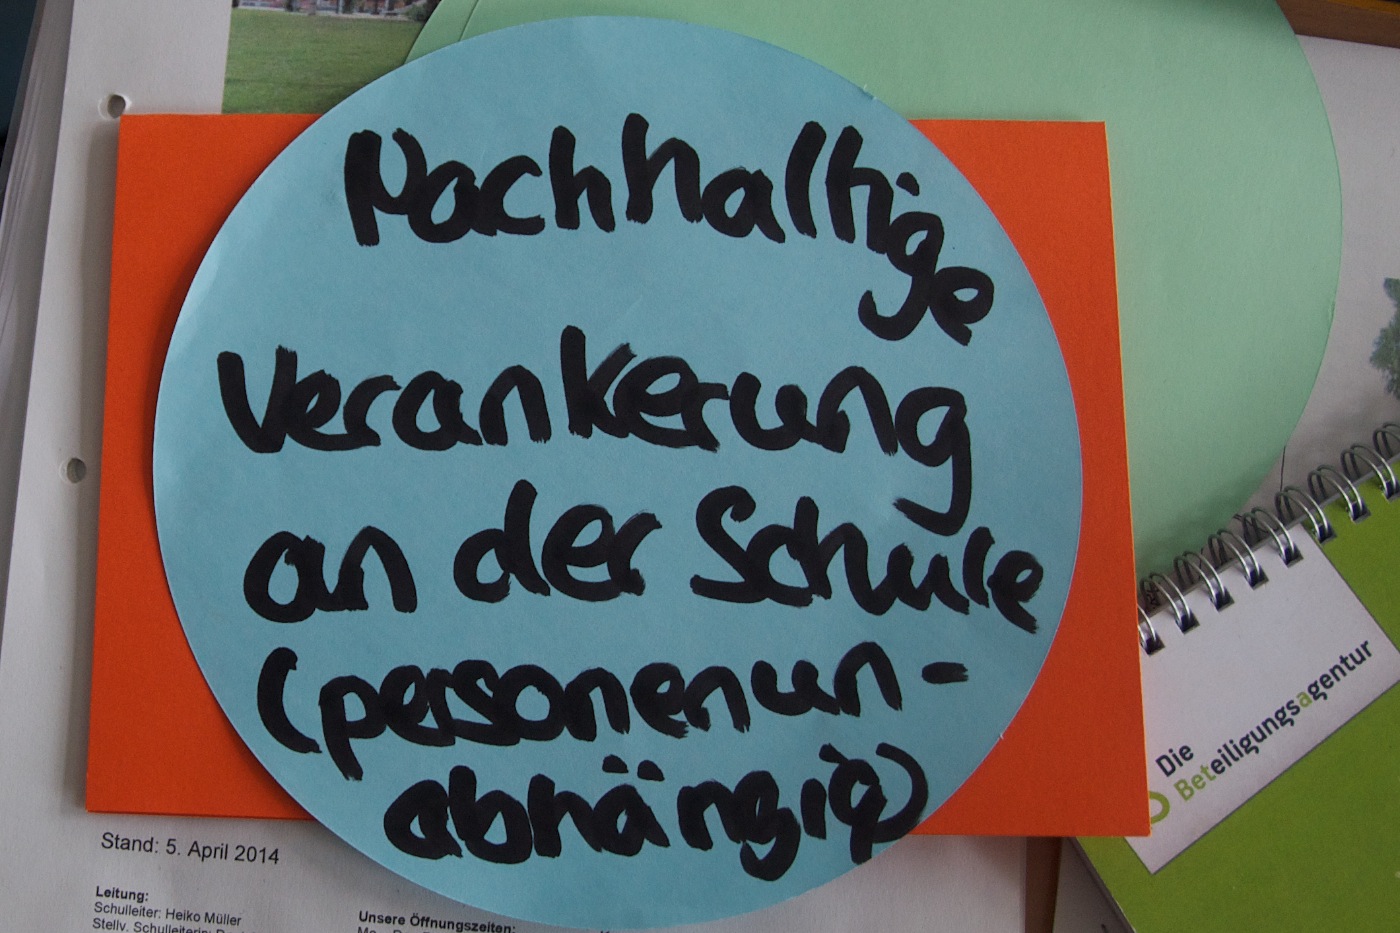 Nachhaltige
Verankerung
an der Schule
(personenun-
abhängig)
Die
Beteiligungsagentur
Stand: 5. April 2014
Leitung:
Schulleiter: Heiko Müller
Stellv. Schulleiterin:
Unsere Öffnungszeiten: